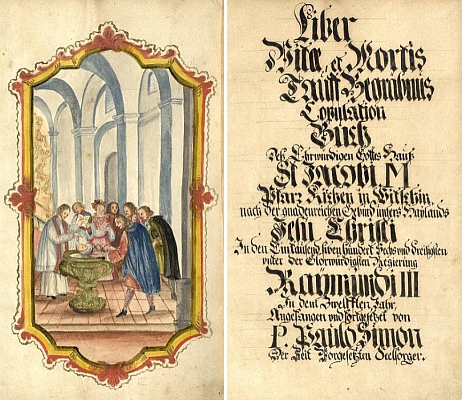 Liber
Vitæ, et Mortis
Tauff
Copulation
Buch
Deß Ehrwürdigen Gottes Hauß
St Jacobi M
Pfarr Kirchen in Witschin,
nach der gnadenreichen Geburd unsers Haylands
Jesu Christi
In den Eintausend siben hundert Sechs und dreißigsten
unter der Glorwürdigsten Regierung
Raymundi III
In dem Zwelfften Jahr,
Angefangen und fortgesetzt von
P. Paulo Simon
Der Zeit Vorgesetzten Seelsorger.